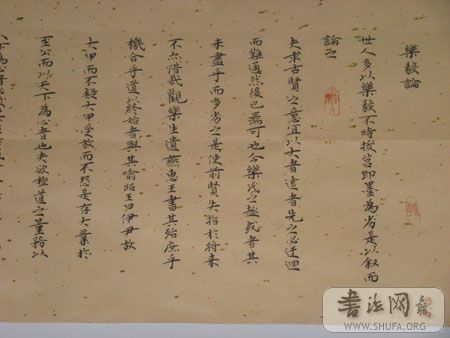 樂毅論
世人多以樂毅不時拔莒即墨為劣是以叙而
論之
夫求古賢之意宜以大者遠者先之必迂迴
而難通然後已焉可也今樂氏之趣或者其
未盡乎而多劣之是使前賢失指於將来
不亦惜哉觀樂生遺燕惠王書其殆庶乎
機合乎道以終始者與其喻昭王曰伊尹放
大甲而不疑大甲受放而不怨是存大業於
至公而以天下為心者也夫欲極道之量務以
書法网
WWW.SHUFA.ORG